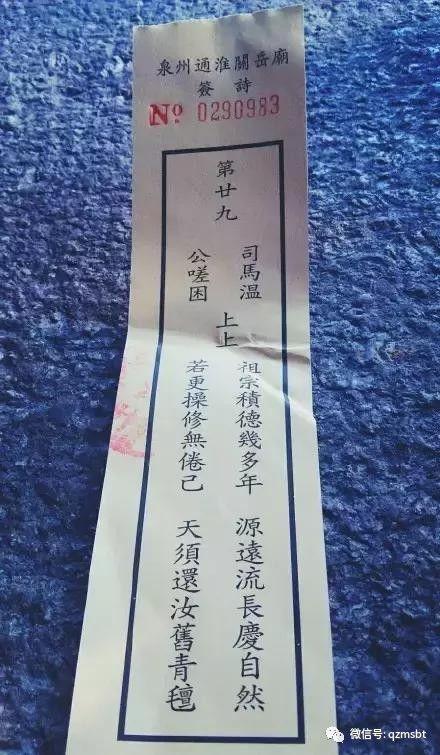 泉州通淮關岳廟
簽詩
Nº 0290983
第廿九
司馬溫
公嗟困
上上
祖宗積德幾多年 源遠流長慶自然
若更操修無倦己 天須還汝舊青氊
微信号: qzmsbt